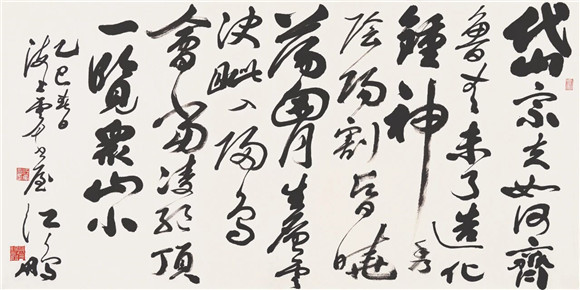 岱宗夫如何齊
魯青未了造化
鍾神秀
陰陽割昏曉
蕩胸生層雲
決眦入歸鳥
會當凌絕頂
一覽衆山小
乙巳春日
海上雲書屋 江鵬